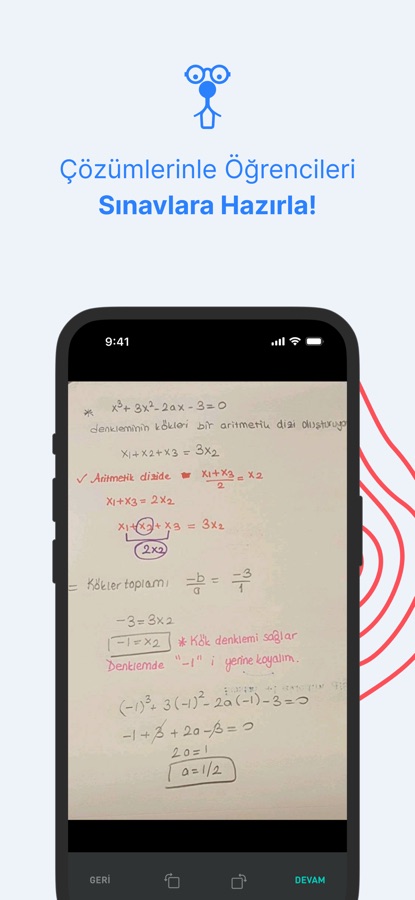 Çözümlerinle Öğrencileri
Sınavlara Hazırla!
9:41
* x³ + 3x² - 2ax - 3 = 0
denkleminin kökleri bir aritmetik dizi oluşturuyo
x₁ + x₂ + x₃ = 3x₂
✓ Aritmetik dizide ➡ (x₁+x₃)/2 = x₂
x₁+x₃ = 2x₂
x₁+x₂+x₃ = 3x₂
2x₂
= Kökler toplamı -b/a = -3/1
-3 = 3x₂
-1 = x₂ * Kök denklemi sağlar
Denklemde "-1" i yerine koyalım.
(-1)³ + 3(-1)² - 2a(-1) - 3 = 0
-1 + 3 + 2a - 3 = 0
2a = 1
a = 1/2
GERİ
DEVAM